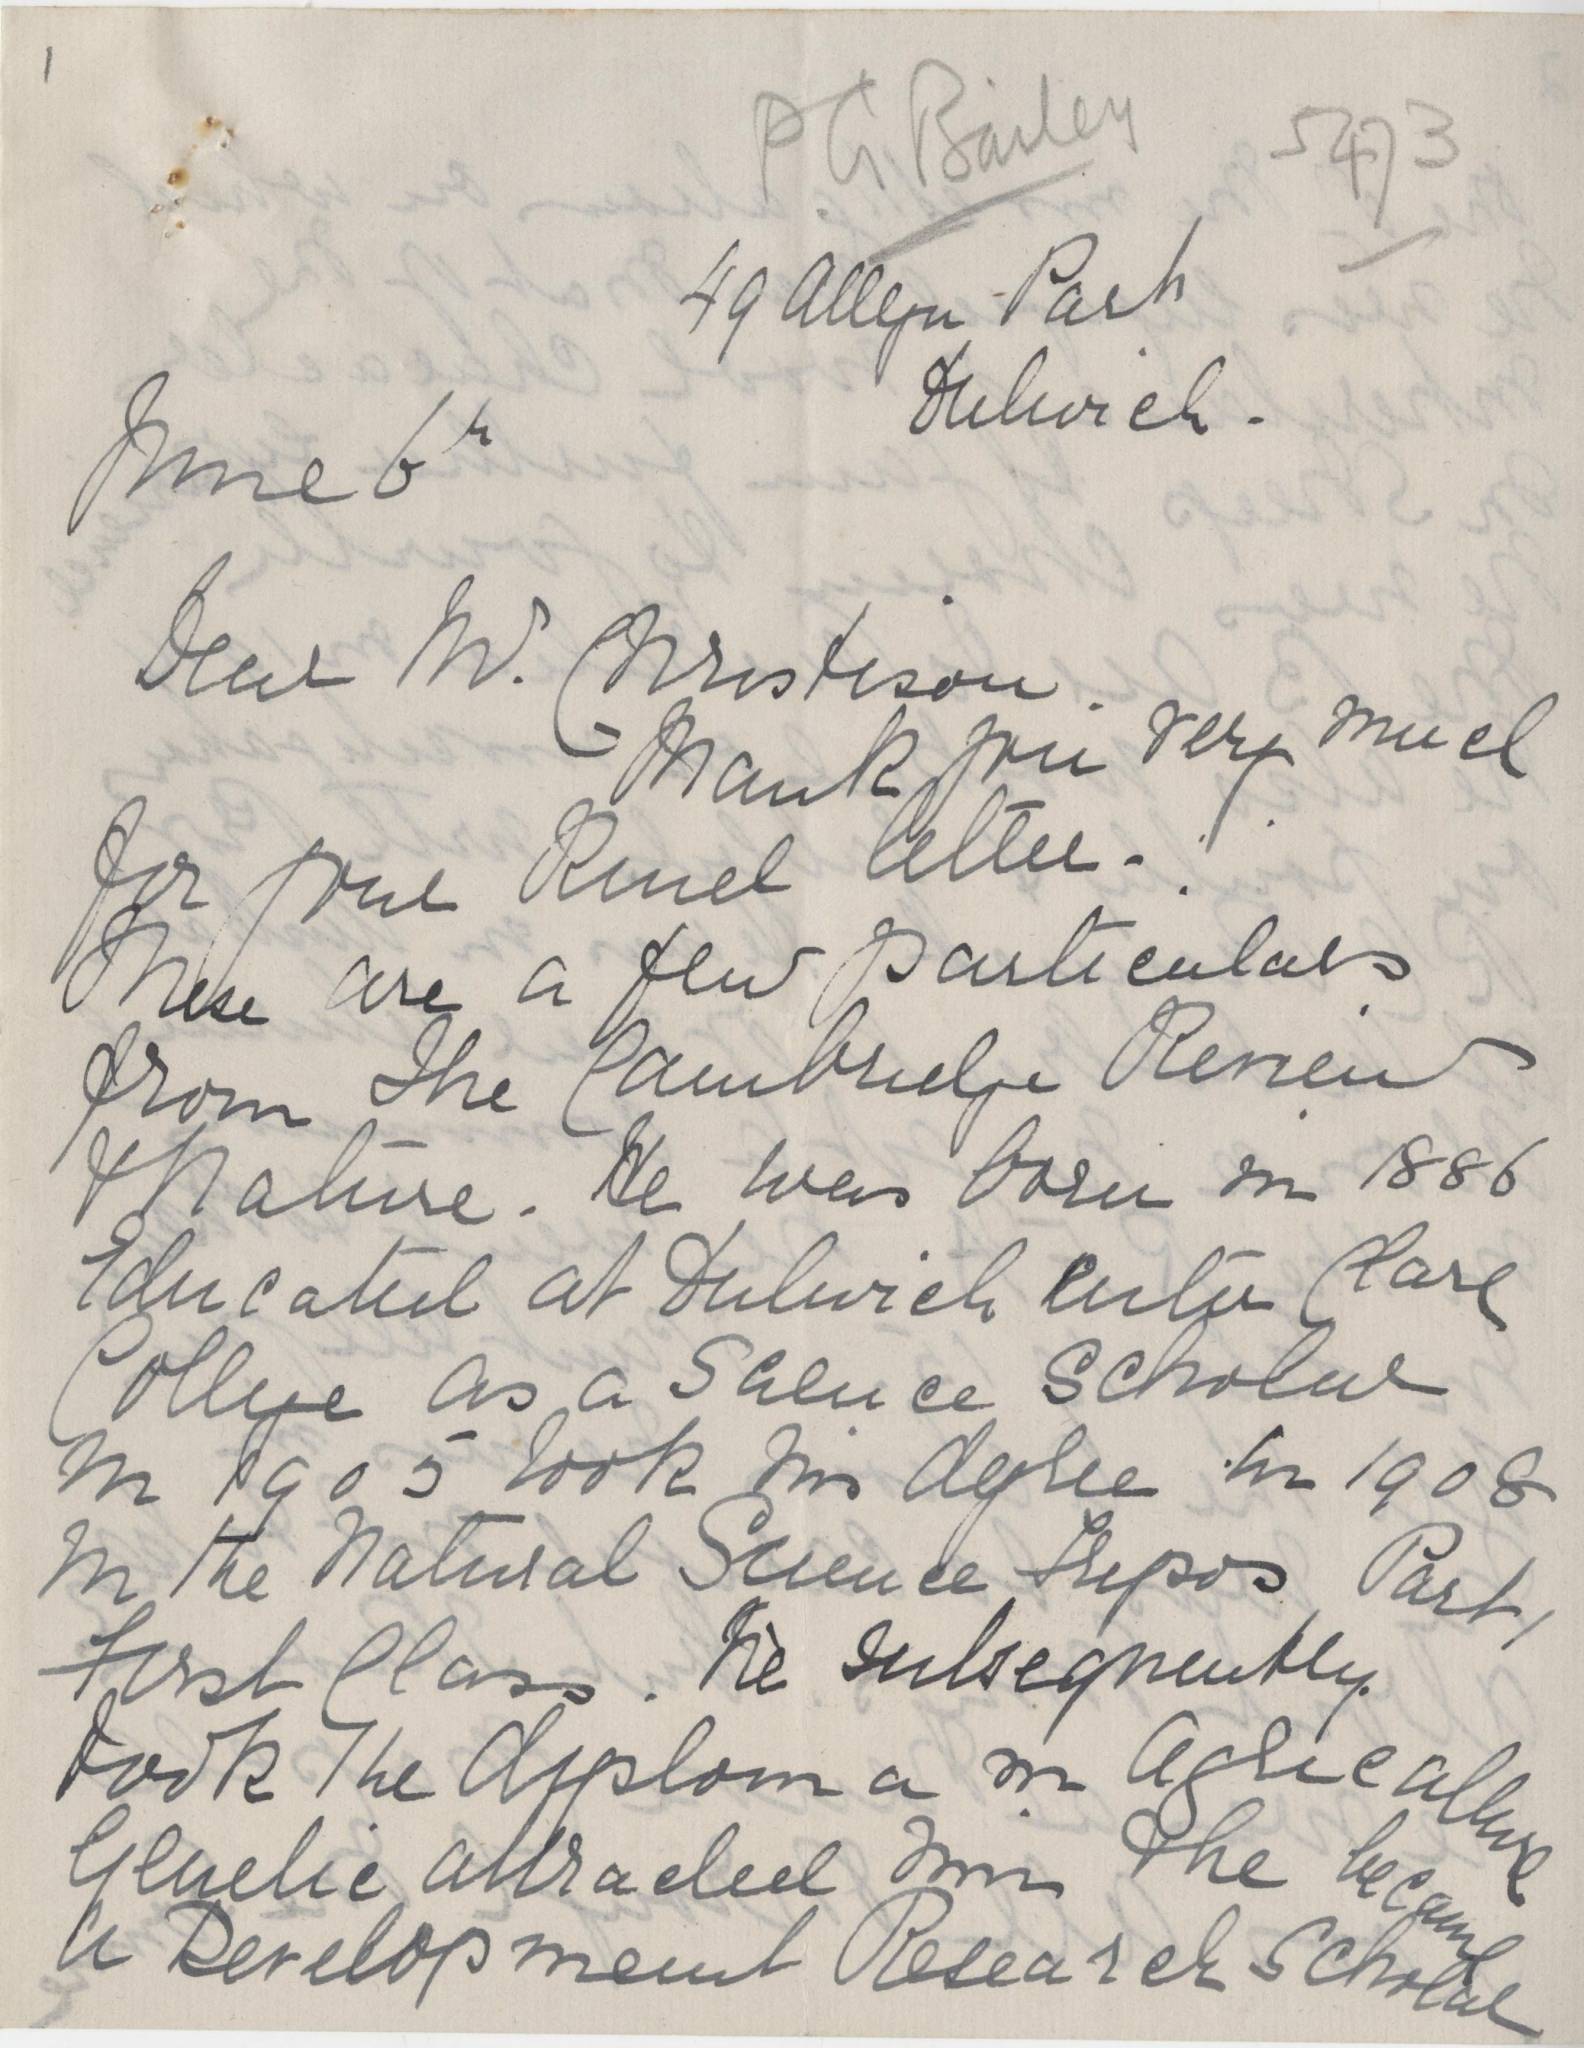 1
P G Bailey 5473
49 Alleyn Park
Dulwich.
June 6th
Dear Mr. Christison.
Thank you very much
for your kind letter.
These are a few particulars
from the Cambridge Review
& Nature. He was born in 1886
Educated at Dulwich enter Clare
College as a Science Scholar
in 1905 took his degree in 1908
in the Natural Science Tripos Part 1
First Class. He subsequently
took the diploma in Agriculture
Genetic attracted him & he became
a Development Research Scholar